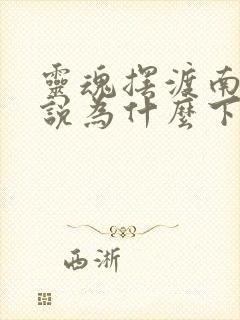 靈魂擺渡南
說為什麼下
西淅